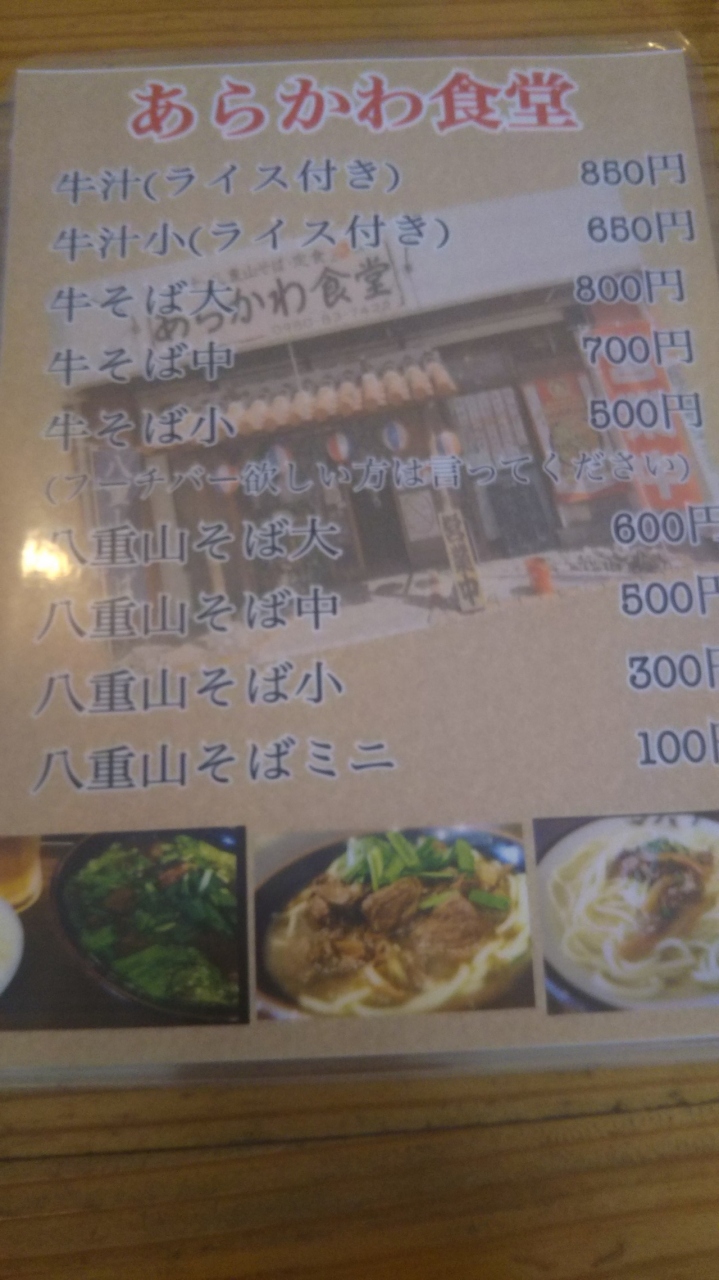 あらかわ食堂
牛汁(ライス付き) 850円
牛汁小(ライス付き) 650円
牛そば大 800円
牛そば中 700円
牛そば小 500円
(フーチバー欲しい方は言ってください)
八重山そば大 600円
八重山そば中 500円
八重山そば小 300円
八重山そばミニ 100円
八重山そば・定食
あらかわ食堂
営業中